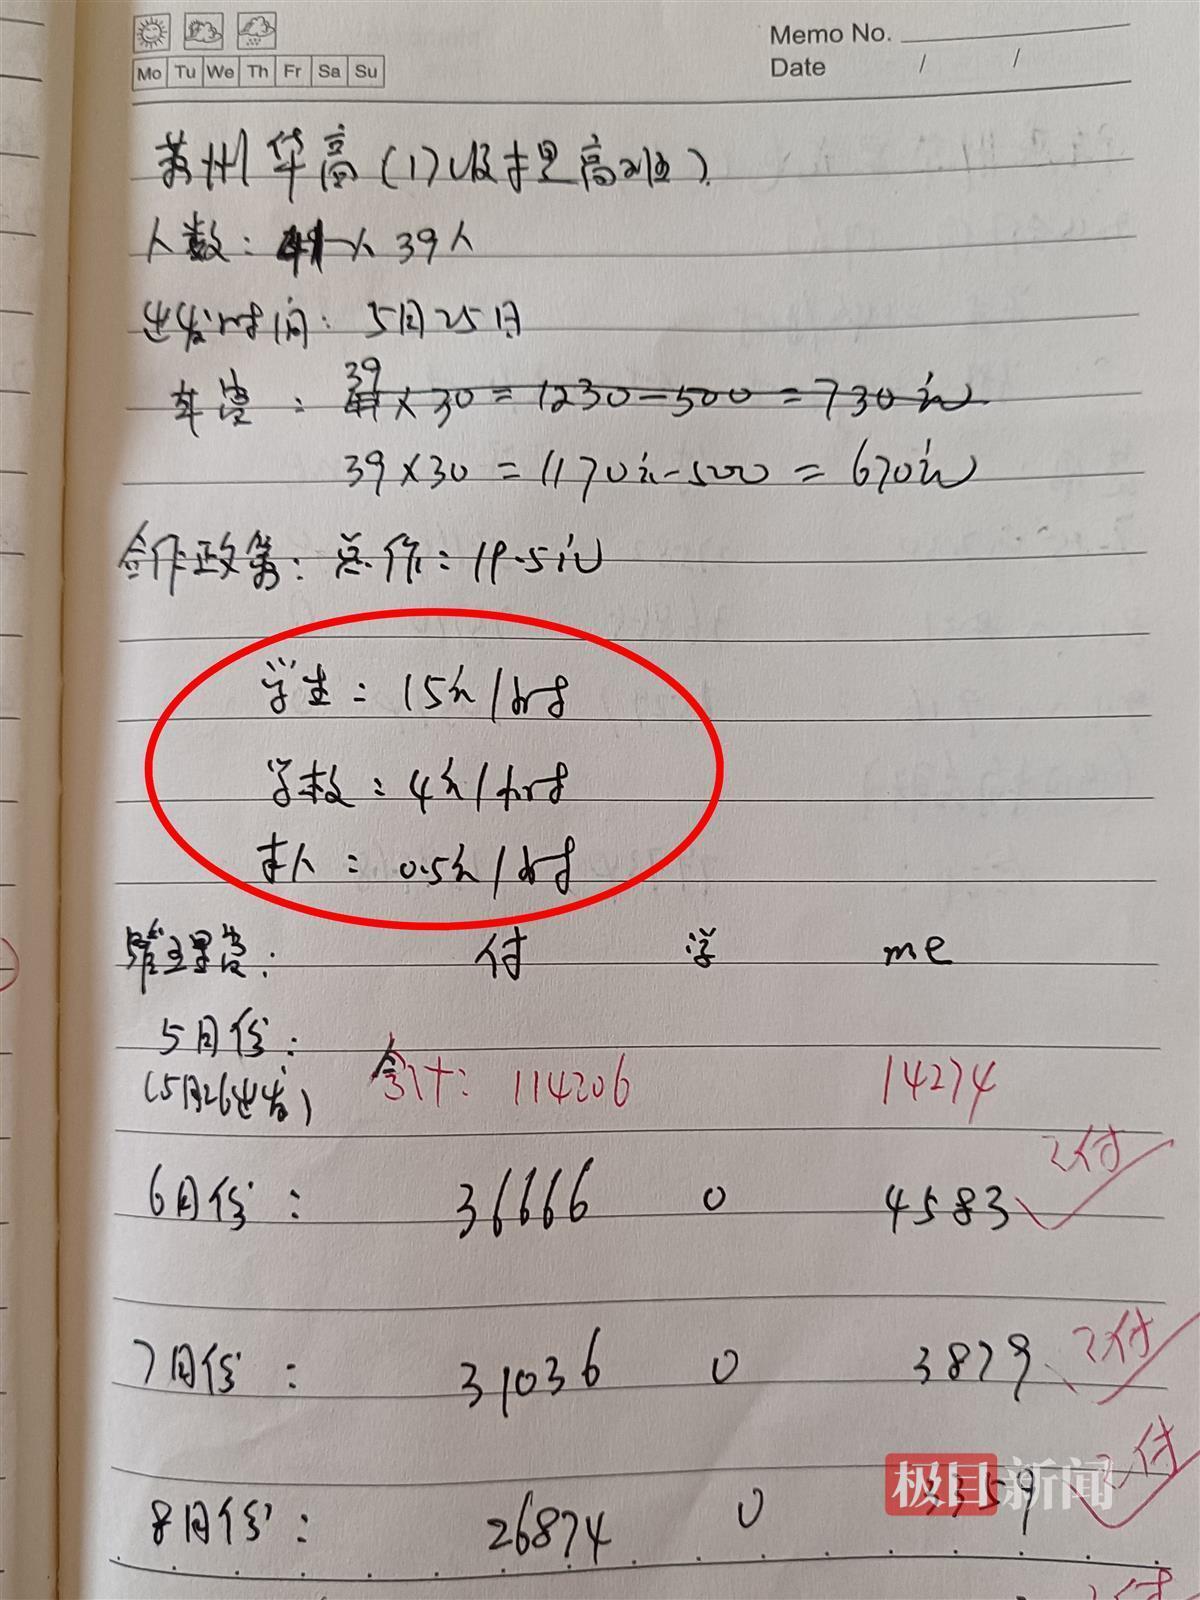 Memo No.
Mo Tu We Th Fr Sa Su
Date / /
苏州华高(
人数: 39人
出发时间: 5月25日
车费: 39 ×30=1230-500=730元
39×30=1170元-500=670元
合作政策: 总价: 19.5元
学生: 15元/时
学校: 4元/时
本人: 0.5元/时
管理费: 付 学 me
5月份:
(5月26出发) 合计: 114206 14274
6月份: 36666 0 4583 已付
7月份: 31036 0 3879 已付
极目新闻
8月份: 26874 0 3359 已付